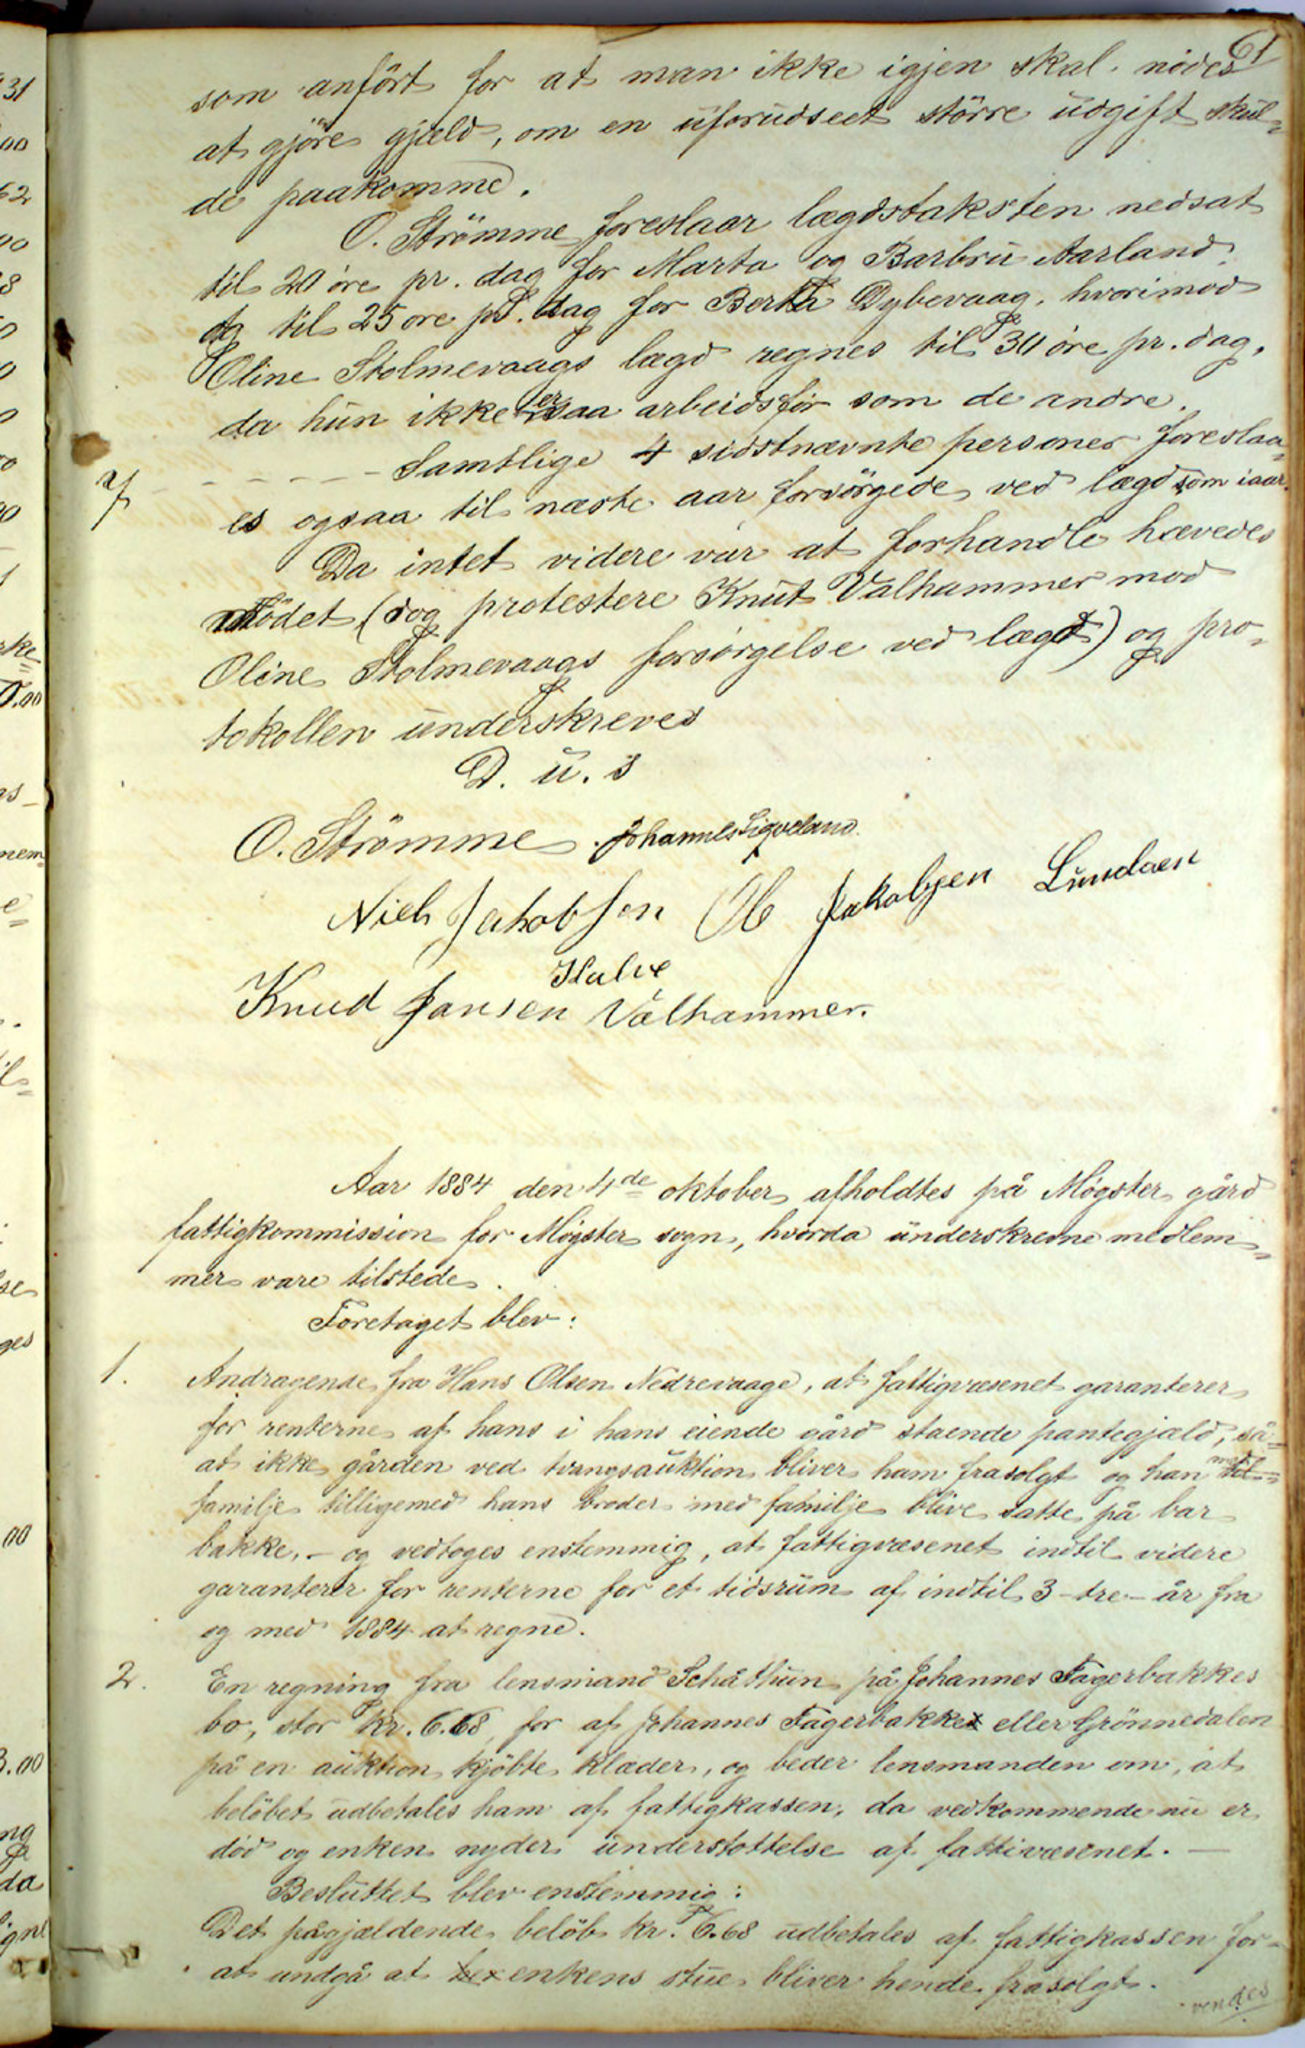 61
som anført for at man ikke igjen skal nødes
at gjøre gjæld, om en uforudseet større udgift skul=
de paakomme.
O. Strømme foreslaar lægdstaksten nedsat
til 20 øre pr. dag for Marta og Barbru Aarland,
og til 25 øre pr. dag for Bertha Dybevaag, hvorimod
Oline Stolmevaags lægd regnes til 30 øre pr. dag,
da hun ikke er saa arbeidsfør som de andre.
- - - - - Samtlige 4 sidstnævnte personer foreslaa=
7 es ogsaa til næste aar forsørgede ved lægd som iaar.
Da intet videre var at forhandle hævedes
mødet (dog protestere Knut Valhammer mod
Oline Stolmevaags forsørgelse ved lægd) og pro=
tokollen underskreves
D. u. s
O. Strømme Johannes Sigveland.
Niels Jakobsen Ole Jakobsen Lundøen
Halvø
Knud Jansen Valhammer.
Aar 1884 den 4de oktober afholdtes på Møgster gård
fattigkommission for Møgster sogn, hvorda underskrevne medlem=
mer vare tilstede.
Foretaget blev:
1. Andragende fra Hans Olsen Nedrevaage, at fattigvæsenet garanterer
for renterne af hans i hans eiende gård staende pantegjæld, så=
at ikke gården ved tvangsauktion bliver ham frasolgt og han med
familje tilligemed hans broder med familje blive satte på bar
bakke. - og vedtoges enstemmig, at fattigvæsenet indtil videre
garanterer for renterne for et tidsrum af indtil 3 - tre - år fra
og med 1884 at regne.
2. En regning fra lensmand Schåthun på Johannes Fagerbakkes
bo, stor kr. 6.68, for af Johannes Fagerbakke eller Grønnedalen
på en auktion kjøbte klæder, og beder lensmanden om, at
beløbet udbetales ham af fattigkassen, da vedkommende nu er
død og enken nyder understøttelse af fattivæsenet. -
Besluttet blev enstemmig:
Det pågjældende beløb kr. 6.68 udbetales af fattigkassen for=
at undgå at enkens stue bliver hende frasolgt.
vendes